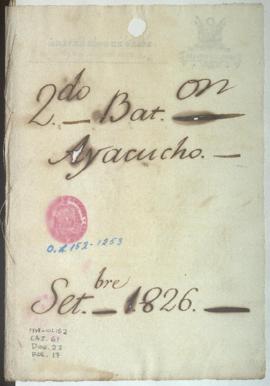 2.do Bat.on
Ayacucho.
O.L 152-1253
Set.bre 1826.
CAJ. 61
DOC. 23
FOL. 19